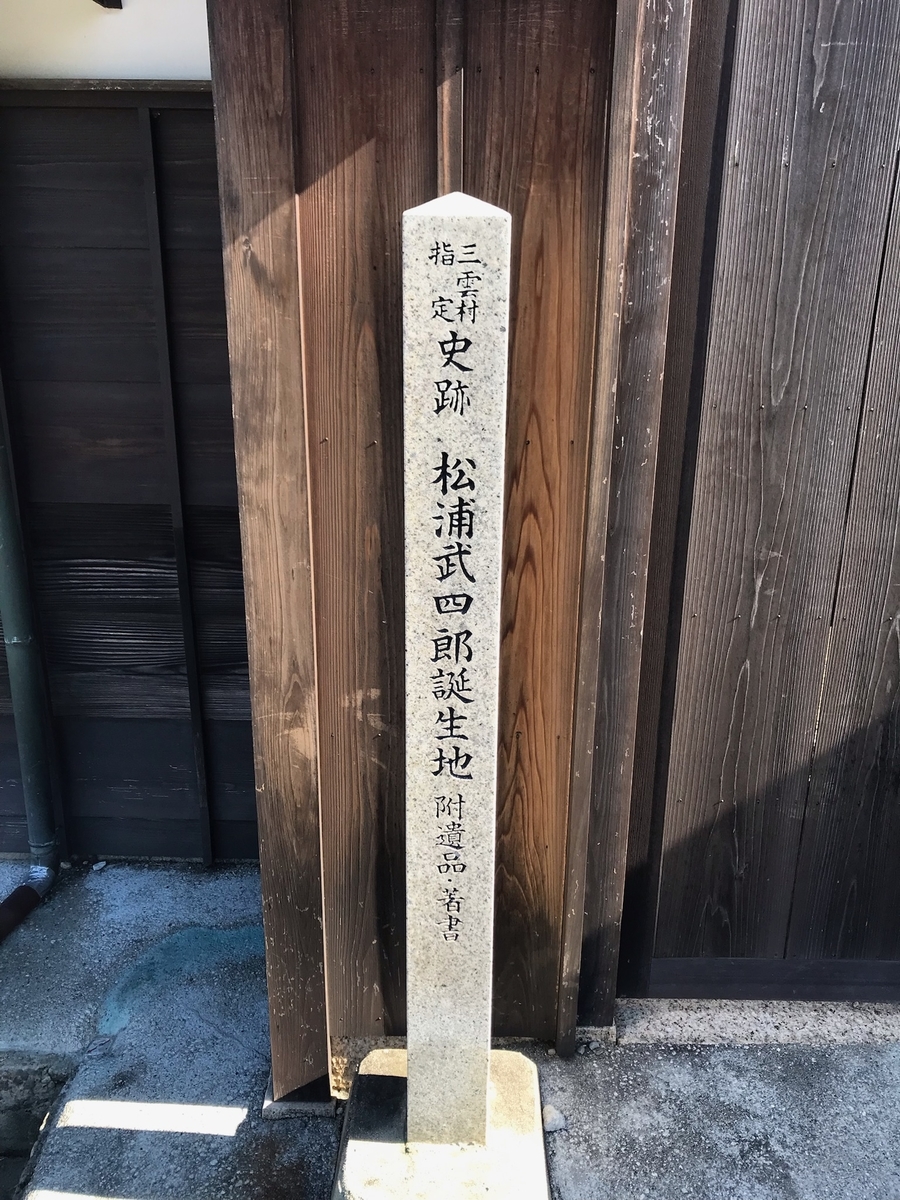 三雲村
指定
史跡 松浦武四郎誕生地 附遺品・著書